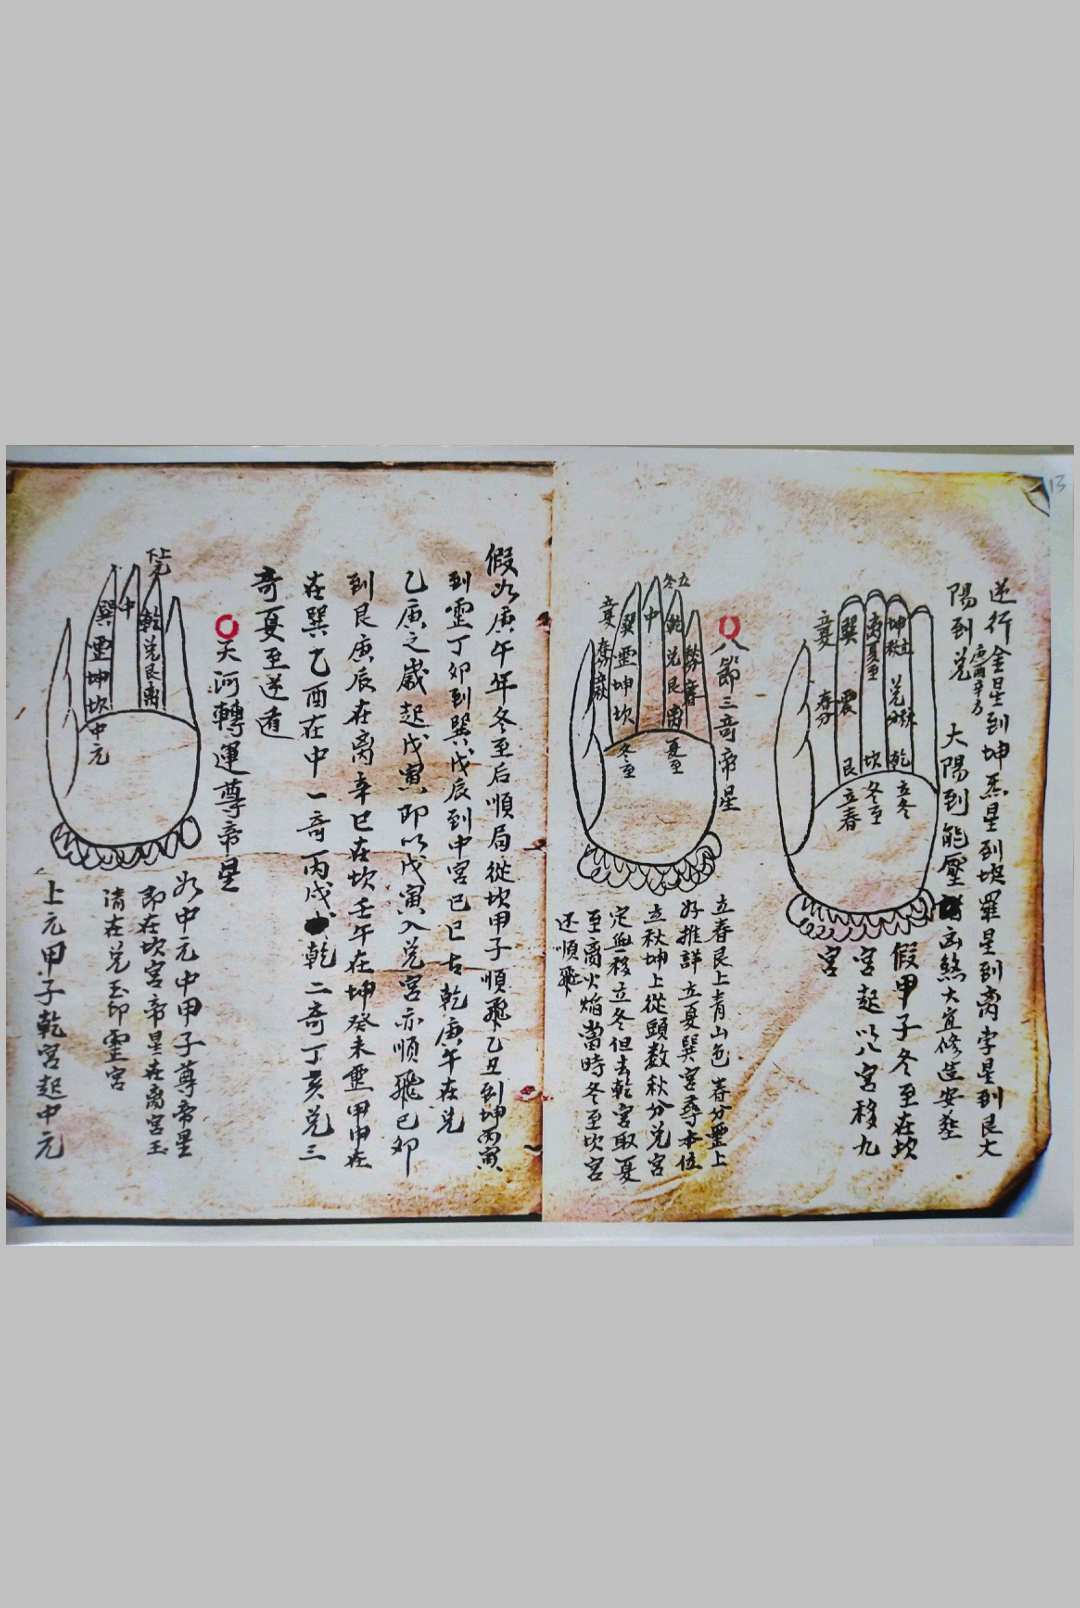 13
逆行金星到坤炁星到坎羅星到离孛星到艮大
陽到兑庚酉辛方大陽到能壓凶煞大宜修造安葬
假甲子冬至在坎
宮起以八宮移九
宮
立夏
巽
离夏至
坤立秋
春分
震
兑秋分
艮
坎
乾
立春
冬至
立冬
八節三奇帝星
立夏
巽
中
立冬
乾
春分
震
兑
秋分
坤
艮
立春
坎
离
冬至
夏至
立春艮上青山色春分震上
好推詳立夏巽宮尋本位
立秋坤上從頭数秋分兑宮
定無移立冬但去乾宮取夏
至离火焰當時冬至坎宮
还順飛
假如庚午年冬至后順局從坎甲子順飛乙丑到坤丙寅
到震丁卯到巽戊辰到中宮己巳古乾庚午在兑
乙庚之歲起戊寅即以戊寅入兑宮亦順飛己卯
到艮庚辰在离辛巳在坎壬午在坤癸未震甲申在
在巽乙酉在中一奇丙戌乾二奇丁亥兑三
奇夏至逆看
天河轉運尊帝星
上元
巽
中
乾
震
兑
坤
艮
坎
离
中元
如中元中甲子尊帝星
即在坎宮帝星在离宮玉
清在兑玉印震宮
上元甲子乾宮起中元